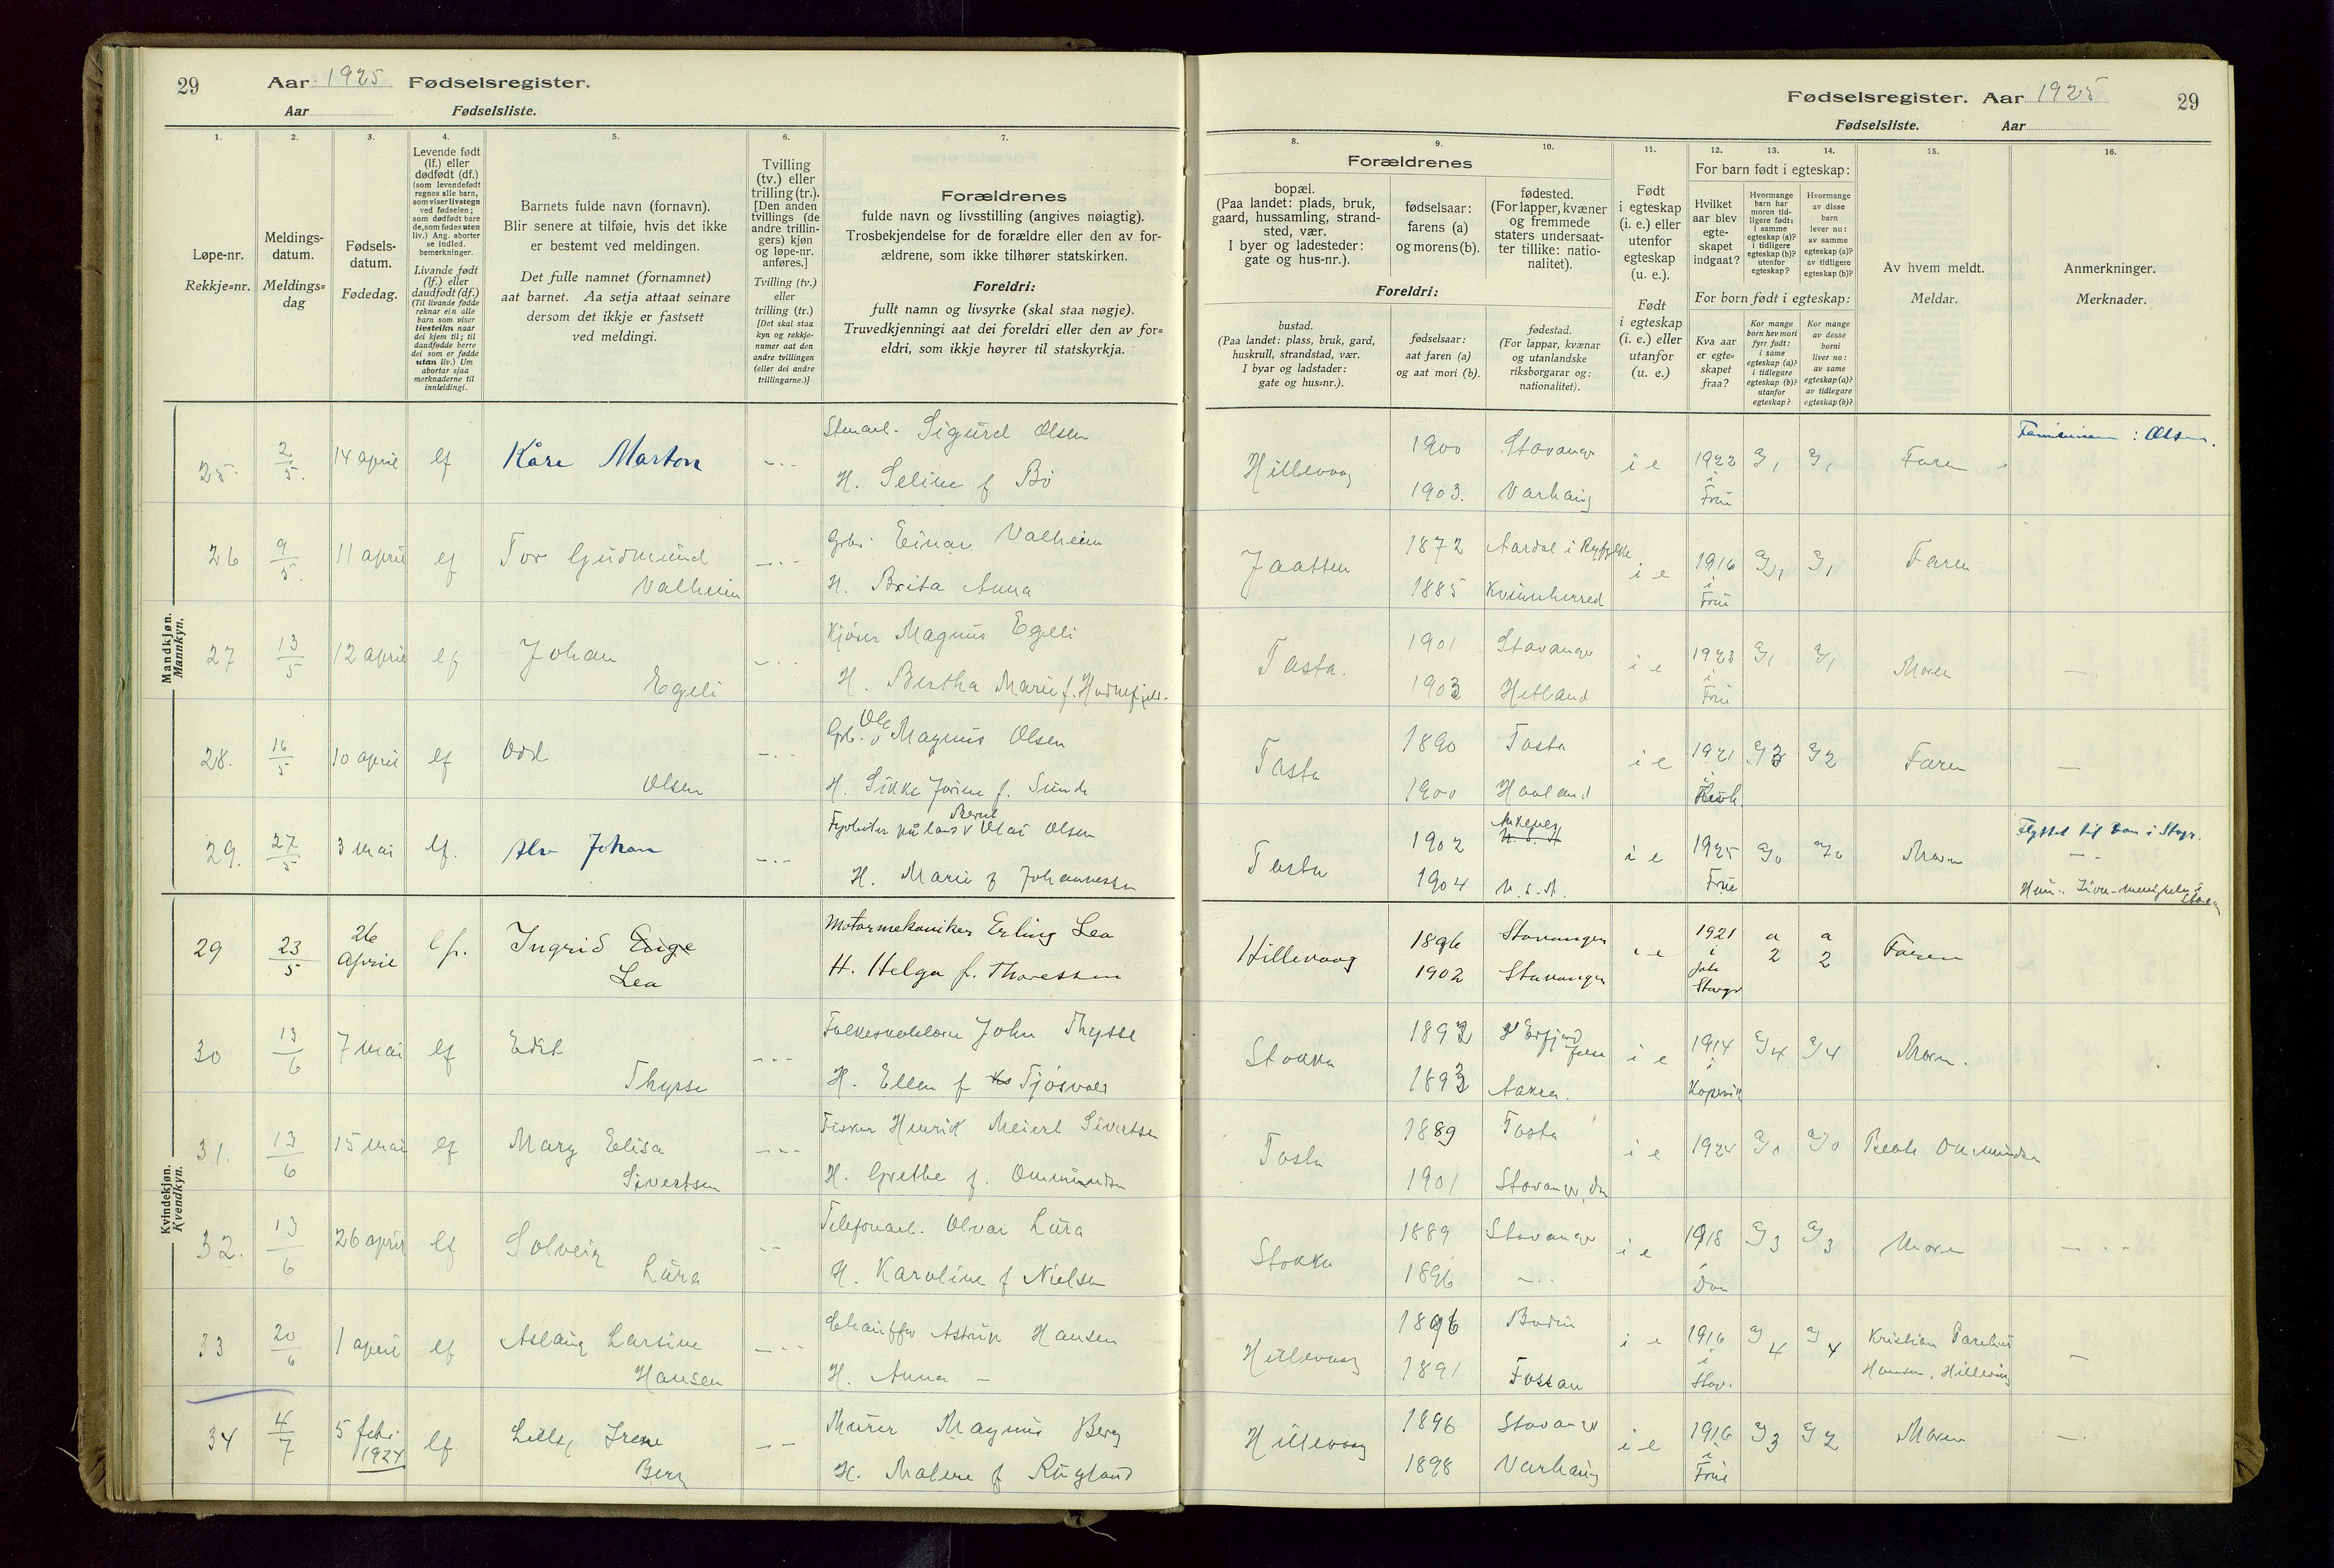 29 Aar 1925 Fødselsregister.
Aar Fødselsliste.
Fødselsregister. Aar 1925 29
Fødselsliste. Aar
1.
Løpe-nr.
Rekkje=nr.
2.
Meldings-
datum.
Meldings=
dag
3.
Fødsels-
datum.
Fødedag.
4.
Levende født
(lf.) eller
dødfødt (df.)
(som levendefødt
regnes alle barn,
som viser livstegn
ved fødselen;
som dødfødt bare
de, som fødes uten
liv.) Ang. aborter
se indled.
bemerkninger.
Livande født
(lf.) eller
daudfødt (df.)
(Til livande fødde
reknar ein alle
barn som viser
livsteikn naar
dei kjem til; til
daudfødde berre
dei som er fødde
utan liv.) Um
abortar sjaa
merknaderne til
innleidingi.
5.
Barnets fulde navn (fornavn).
Blir senere at tilføie, hvis det ikke
er bestemt ved meldingen.
Det fulle namnet (fornamnet)
aat barnet. Aa setja attaat seinare
dersom det ikkje er fastsett
ved meldingi.
6.
Tvilling
(tv.) eller
trilling (tr.).
[Den anden
tvillings (de
andre trillin-
gers) kjøn
og løpe-nr.
anføres.]
Tvilling (tv.)
eller
trilling (tr.)
[Det skal staa
kyn og rekkje-
numer aat den
andre tvillingen
(eller dei andre
trillingarne.)]
7.
Forældrenes
fulde navn og livsstilling (angives nøiagtig).
Trosbekjendelse for de forældre eller den av for-
ældrene, som ikke tilhører statskirken.
Foreldri:
fullt namn og livsyrke (skal staa nøgje).
Truvedkjenningi aat dei foreldri eller den av for=
eldri, som ikkje høyrer til statskyrkja.
Forældrenes
8.
bopæl.
(Paa landet: plads, bruk,
gaard, hussamling, strand-
sted, vær.
I byer og ladesteder:
gate og hus-nr.).
9.
fødselsaar:
farens (a)
og morens (b).
10.
fødested.
(For lapper, kvæner
og fremmede
staters undersaat-
ter tillike: natio-
nalitet).
Foreldri:
bustad.
(Paa landet: plass, bruk, gard,
huskrull, strandstad, vær.
I byar og ladstader:
gate og hus=nr.).
fødselsaar:
aat faren (a)
og aat mori (b).
fødestad.
(For lappar, kvænar
og utanlandske
riksborgarar og:
nationalitet).
11.
Født
i egteskap
(i. e.) eller
utenfor
egteskap
(u. e.).
Født
i egteskap
(i. e.) eller
utanfor
(u. e.)
For barn født i egteskap:
12.
Hvilket
aar blev
egte-
skapet
indgaat?
13.
Hvormange
barn har
moren tid-
ligere født:
i samme
egteskap (a)?
i tidligere
egteskap (b)?
utenfor
egteskap?
14.
Hvormange
av disse
barn
lever nu:
av samme
egteskap (a)?
av tidligere
egteskap (b)?
For born født i egteskap:
Kva aar
er egte-
skapet
fraa?
Kor mange
born hev mori
fyrr født:
i same
egteskap (a)?
i tidlegare
egteskap (b)?
utanfor
egteskap?
Kor mange
av desse
borni
liver no:
av same
egteskap (a)?
av tidlegare
egteskap (b)?
15.
Av hvem meldt.
Meldar.
16.
Anmerkninger.
Merknader.
Mandkjøn.
Mannkyn.
25. 2/5. 14 april lf Kåre Marton Sigurd Olsen
H. Seline f Bö
Hillevaag 1900 Stavanger i e 1922 Faren Olsen.
1903. Varhaug i Frue
26 9/5. 11 april lf Tor Gudmund
Valheim
Einar Valheim
H. Brita Anna
Jaatten 1872 Aardal i Ryfylke i e 1916 Faren
1885 Kvinnherred i Frue
27 13/5 12 april lf Johan
Egeli
Magnus Egeli
H. Bertha Marie f.
Tasta. 1901 Stavanger i e 1923 Moren
1903 Hetland i Frue
28. 16/5 10 april lf Odd
Olsen
Ole Magnus Olsen
H. Sikke f. Sunde
Tasta 1890 Tasta i e 1921 Faren
1900 Haaland
29. 27/5 3 mai lf. Alv Johan Olai Olsen
H. Marie f Johannessen
Tasta 1902 i e 1925 Moren
1904 Frue
Kvindekjøn.
Kvendkyn.
29 23/5 26 april lf. Ingrid
Lea
Motormekaniker Erling Lea
H. Helga f. Thoressen
Hillevaag 1896 Stavanger i e 1921 a 2 a 2 Faren
1902 Stavanger i
30 13/6 7 mai lf Edit
Thysse
John Thysse
H. Ellen f Tjösvold
Stokka i e 1914 Moren.
1893 Aakra. i Kopervik
31. 13/6 15 mai lf Mary Elisa
Sivertsen
Fisker Henrik Meiert Sivertsen
H. Grethe f. Ommundsen
Tasta 1889 Tasta i e 1924 Ommundsen
1901 Stavanger,
32. 13/6 26 april lf Solveig
Lura
Olvar Lura
H. Karoline f Nielsen
Stokka 1889 Stavanger i e 1918 Moren
1896
33 20/6 1 april lf Aslaug Larsine
Hansen
Chauffør Astrup Hansen
H. Anna
Hillevaag 1896 i e 1916 Kristian
1891 Fossan i Stav. Hansen, Hillevaag
34 4/7 5 febr. 1924 lf Irene
Berg
Murer Magnus Berg
H. Malene f Rugland
Hillevaag 1896 Stavanger i e 1916 Moren
1898 Varhaug i Frue